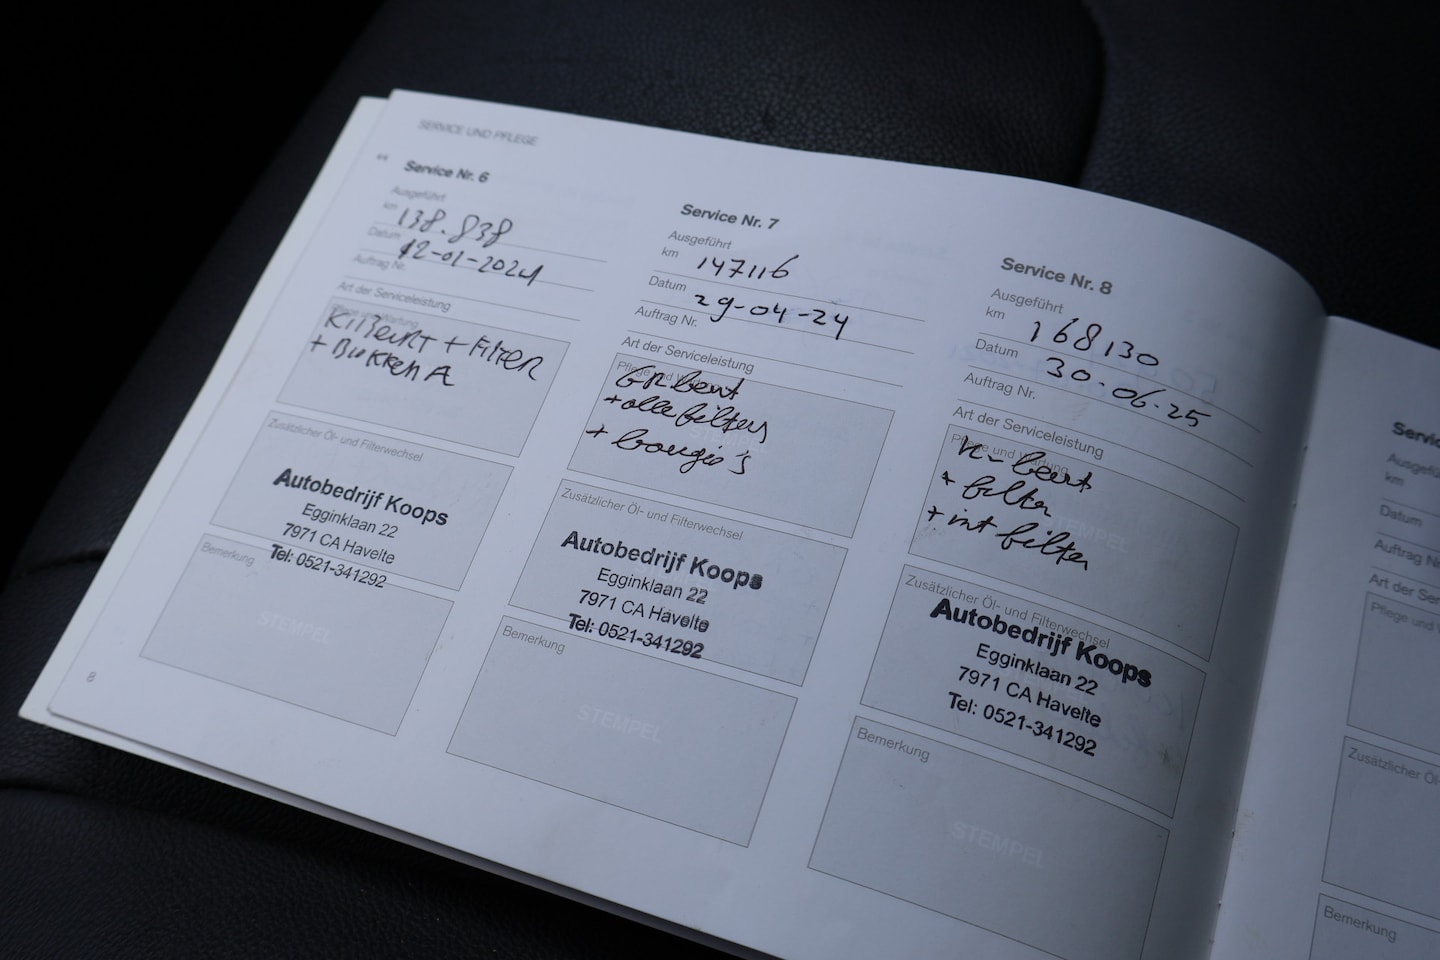 SERVICE UND PFLEGE
Service Nr. 6
Ausgeführt
km 138.838
Datum 12-01-2024
Auftrag Nr.
Art der Serviceleistung
Pflege und Wartung
Kl Beurt + Filter
+ Bukken A
Zusätzlicher Öl- und Filterwechsel
Autobedrijf Koops
Egginklaan 22
7971 CA Havelte
Tel: 0521-341292
Bemerkung
STEMPEL
8
Service Nr. 7
Ausgeführt
km 147116
Datum 29-04-24
Auftrag Nr.
Art der Serviceleistung
Pflege und Wartung
GR beurt
+ alle filters
+ bougie's
Zusätzlicher Öl- und Filterwechsel
Autobedrijf Koops
Egginklaan 22
7971 CA Havelte
Tel: 0521-341292
Bemerkung
STEMPEL
Service Nr. 8
Ausgeführt
km 168130
Datum 30-06-25
Auftrag Nr.
Art der Serviceleistung
Pflege und Wartung
K-beurt
+ filter
+ int filter
STEMPEL
Zusätzlicher Öl- und Filterwechsel
Autobedrijf Koops
Egginklaan 22
7971 CA Havelte
Tel: 0521-341292
Bemerkung
STEMPEL
Servic
Ausgefü
km
Datum
Auftrag N
Art der Ser
Pflege und W
Zusätzlicher Öl-
Bemerkung